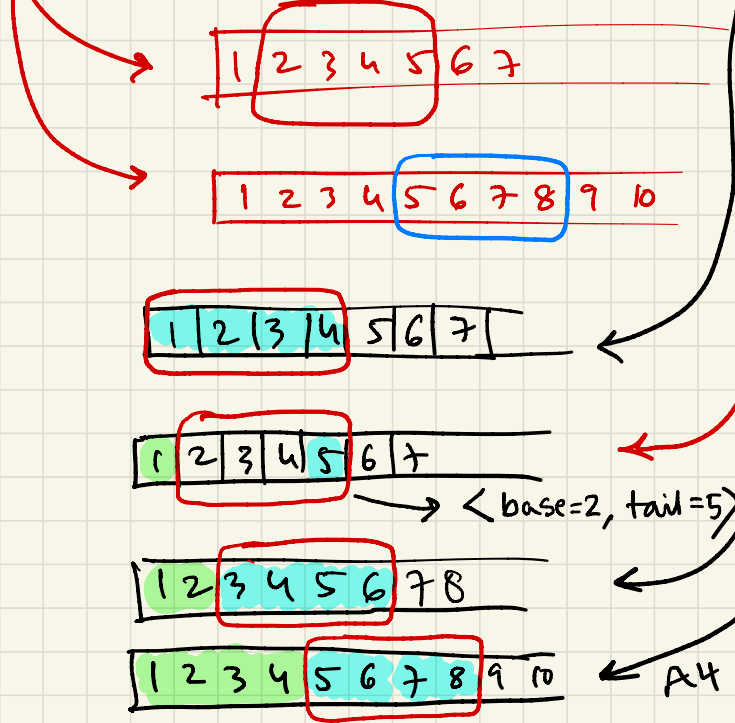 1 2 3 4 5 6 7
1 2 3 4 5 6 7 8 9 10
1 2 3 4 5 6 7
1 2 3 4 5 6 7
< base=2, tail=5>
1 2 3 4 5 6 7 8
1 2 3 4 5 6 7 8 9 10
A4